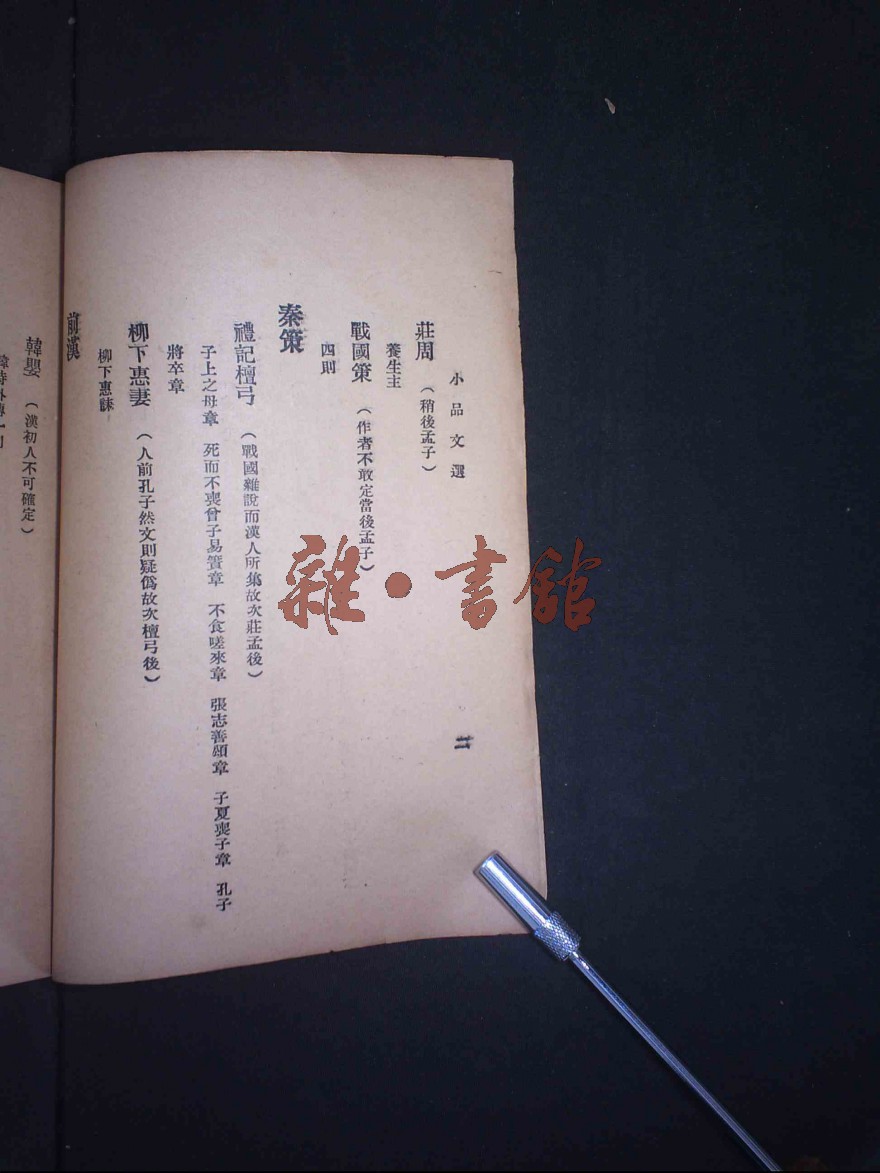 小品文選
二
莊周（稍後孟子）
養生主
戰國策（作者不敢定當後孟子）
四則
秦策
禮記檀弓（戰國雜說而漢人所集故次莊孟後）
子上之母章 死而不喪曾子易簀章 不食嗟來章 張志善頌章 子夏喪子章 孔子
將卒章
柳下惠妻（人前孔子然文則疑僞故次檀弓後）
柳下惠誄
前漢
韓嬰（漢初人不可確定）
雜·書館